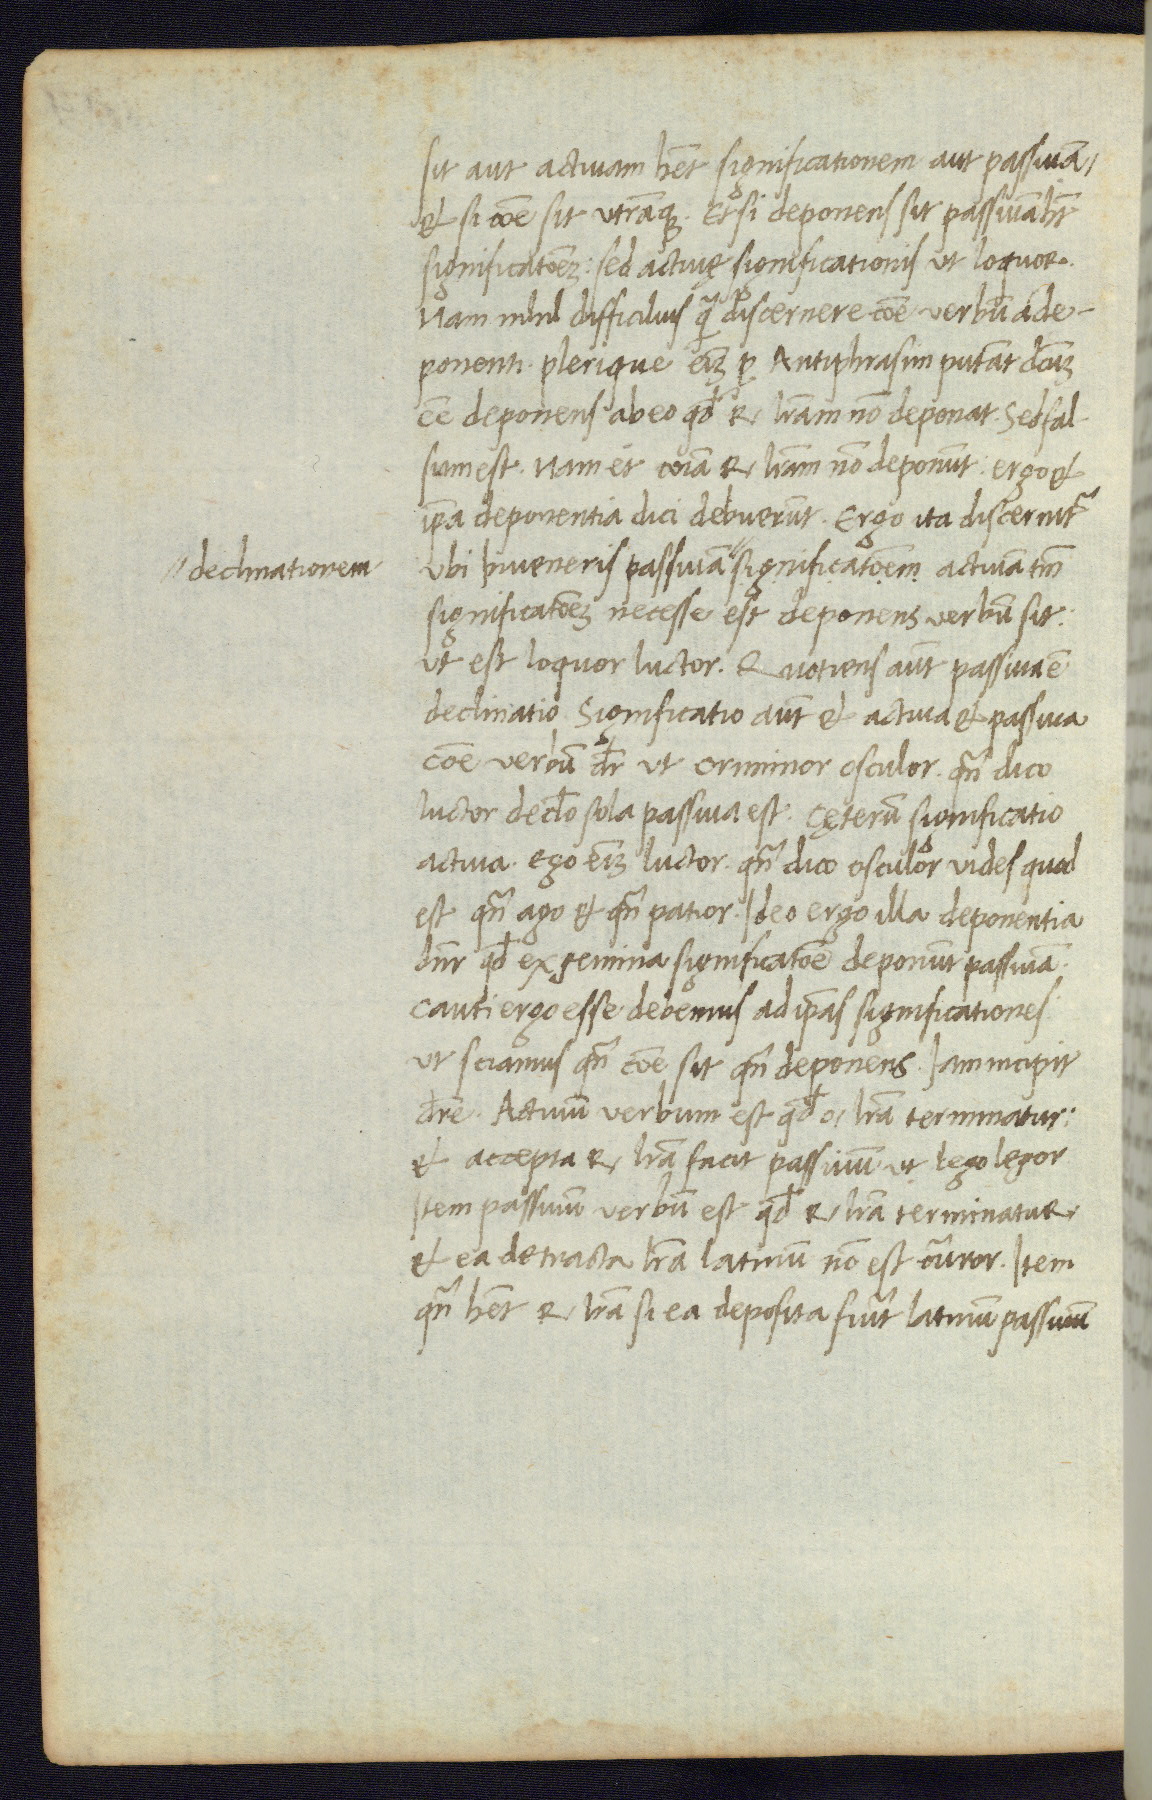 sit aut actiuam hēt significationem aut passiuā,
et si cōe sit vtrāq. Et si deponens sit passiuā hēt
significatōeȝ: sed actiuę significationis vt loquor.
Nam nihil difficilius q̄ discernere cōe verbū a de-
ponenti. plerique eīȝ p Antiphrasim putāt dcūȝ
eē deponens ab eo qđ R, lrām nō deponat. Sed fal-
sum est. Nam et cōia R, lrām nō deponūt: ergo et
ip̄a deponentia dici debuerūt. Ergo ita discernit᷑
// declinationem
vbi inueneris passiuā // significatōem actiuā tm̄
significatōeȝ necesse est deponens verbū sit:
vt est loquor luctor. Quotiens aūt passiua ē
declinatio. Significatio aūt et actiua et passiua
cōe verbū dr̄ vt criminor osculor. qn̄ dico
luctor declō sola passiua est. Cęterū significatio
actiua. ego eīȝ luctor. qn̄ dico osculor vides quod
est qn̄ ago et qn̄ patior. Ideo ergo illa deponentia
dnr̄ qđ ex gemina significatōe deponūt passiuā.
Cauti ergo esse debemus ad ip̄as significationes
vt sciamus qn̄ cōe sit qn̄ deponens. Iam incipit
dr̄e. Actiuū verbum est qđ o, lrā terminatur:
et accepta R, lrā facit passiuū vt lego legor
Item passiuū verbū est qđ R, lrā terminatur,
et ea detracta lrā latinū nō est. Item
qn̄ hēt R, lrā si ea deposita fiūt latinū passiuū